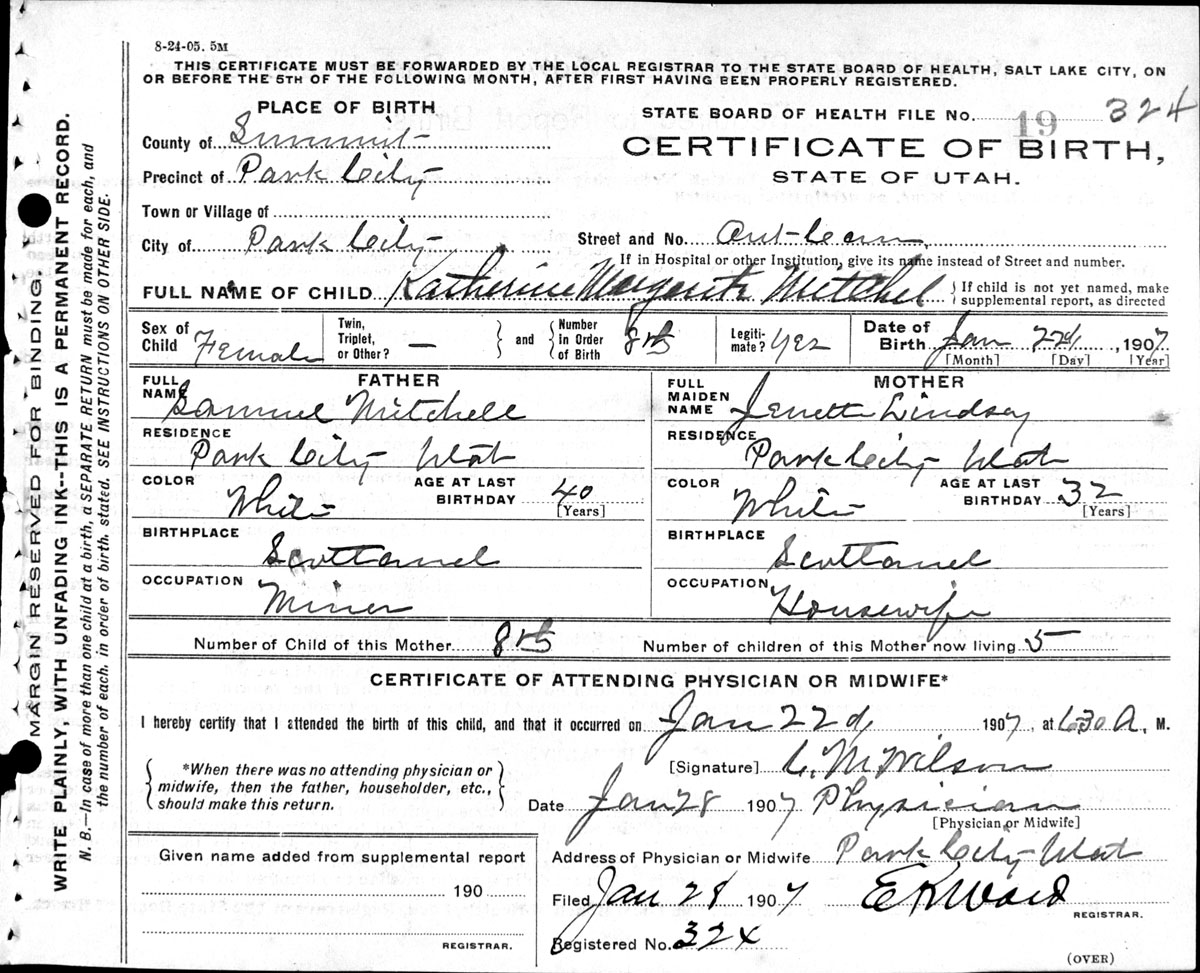 8-24-05. 5M
THIS CERTIFICATE MUST BE FORWARDED BY THE LOCAL REGISTRAR TO THE STATE BOARD OF HEALTH, SALT LAKE CITY, ON
OR BEFORE THE 5TH OF THE FOLLOWING MONTH, AFTER FIRST HAVING BEEN PROPERLY REGISTERED.
PLACE OF BIRTH
County of Summit
Precinct of Park City
Town or Village of
City of Park City
STATE BOARD OF HEALTH FILE No. 19 324
CERTIFICATE OF BIRTH,
STATE OF UTAH.
Street and No.
If in Hospital or other Institution, give its name instead of Street and number.
FULL NAME OF CHILD Katherine Margarite Mitchel { If child is not yet named, make
supplemental report, as directed
Sex of Child Female
Twin, Triplet, or Other? —
and Number in Order of Birth 8th
Legitimate? Yes
Date of Birth Jan 22d, 1907
[Month] [Day] [Year]
FATHER
FULL NAME Samuel Mitchell
RESIDENCE Park City Utah
COLOR White
AGE AT LAST BIRTHDAY 40 [Years]
BIRTHPLACE Scottland
OCCUPATION Miner
MOTHER
FULL MAIDEN NAME Jenett Lindsay
RESIDENCE Park City Utah
COLOR White
AGE AT LAST BIRTHDAY 32 [Years]
BIRTHPLACE Scottland
OCCUPATION Housewife
Number of Child of this Mother 8th Number of children of this Mother now living 5
CERTIFICATE OF ATTENDING PHYSICIAN OR MIDWIFE*
I hereby certify that I attended the birth of this child, and that it occurred on Jan 22d 1907, at 630 A. M.
*When there was no attending physician or
midwife, then the father, householder, etc.,
should make this return.
[Signature] C. M Wilson
Date Jan 28 1907 Physician
[Physician or Midwife]
Given name added from supplemental report
190
REGISTRAR.
Address of Physician or Midwife Park City Utah
Filed Jan 28 1907 E K Ward
REGISTRAR.
Registered No. 324
(OVER)
MARGIN RESERVED FOR BINDING.
WRITE PLAINLY, WITH UNFADING INK--THIS IS A PERMANENT RECORD.
N. B.—In case of more than one child at a birth, a SEPARATE RETURN must be made for each, and
the number of each, in order of birth, stated. SEE INSTRUCTIONS ON OTHER SIDE.